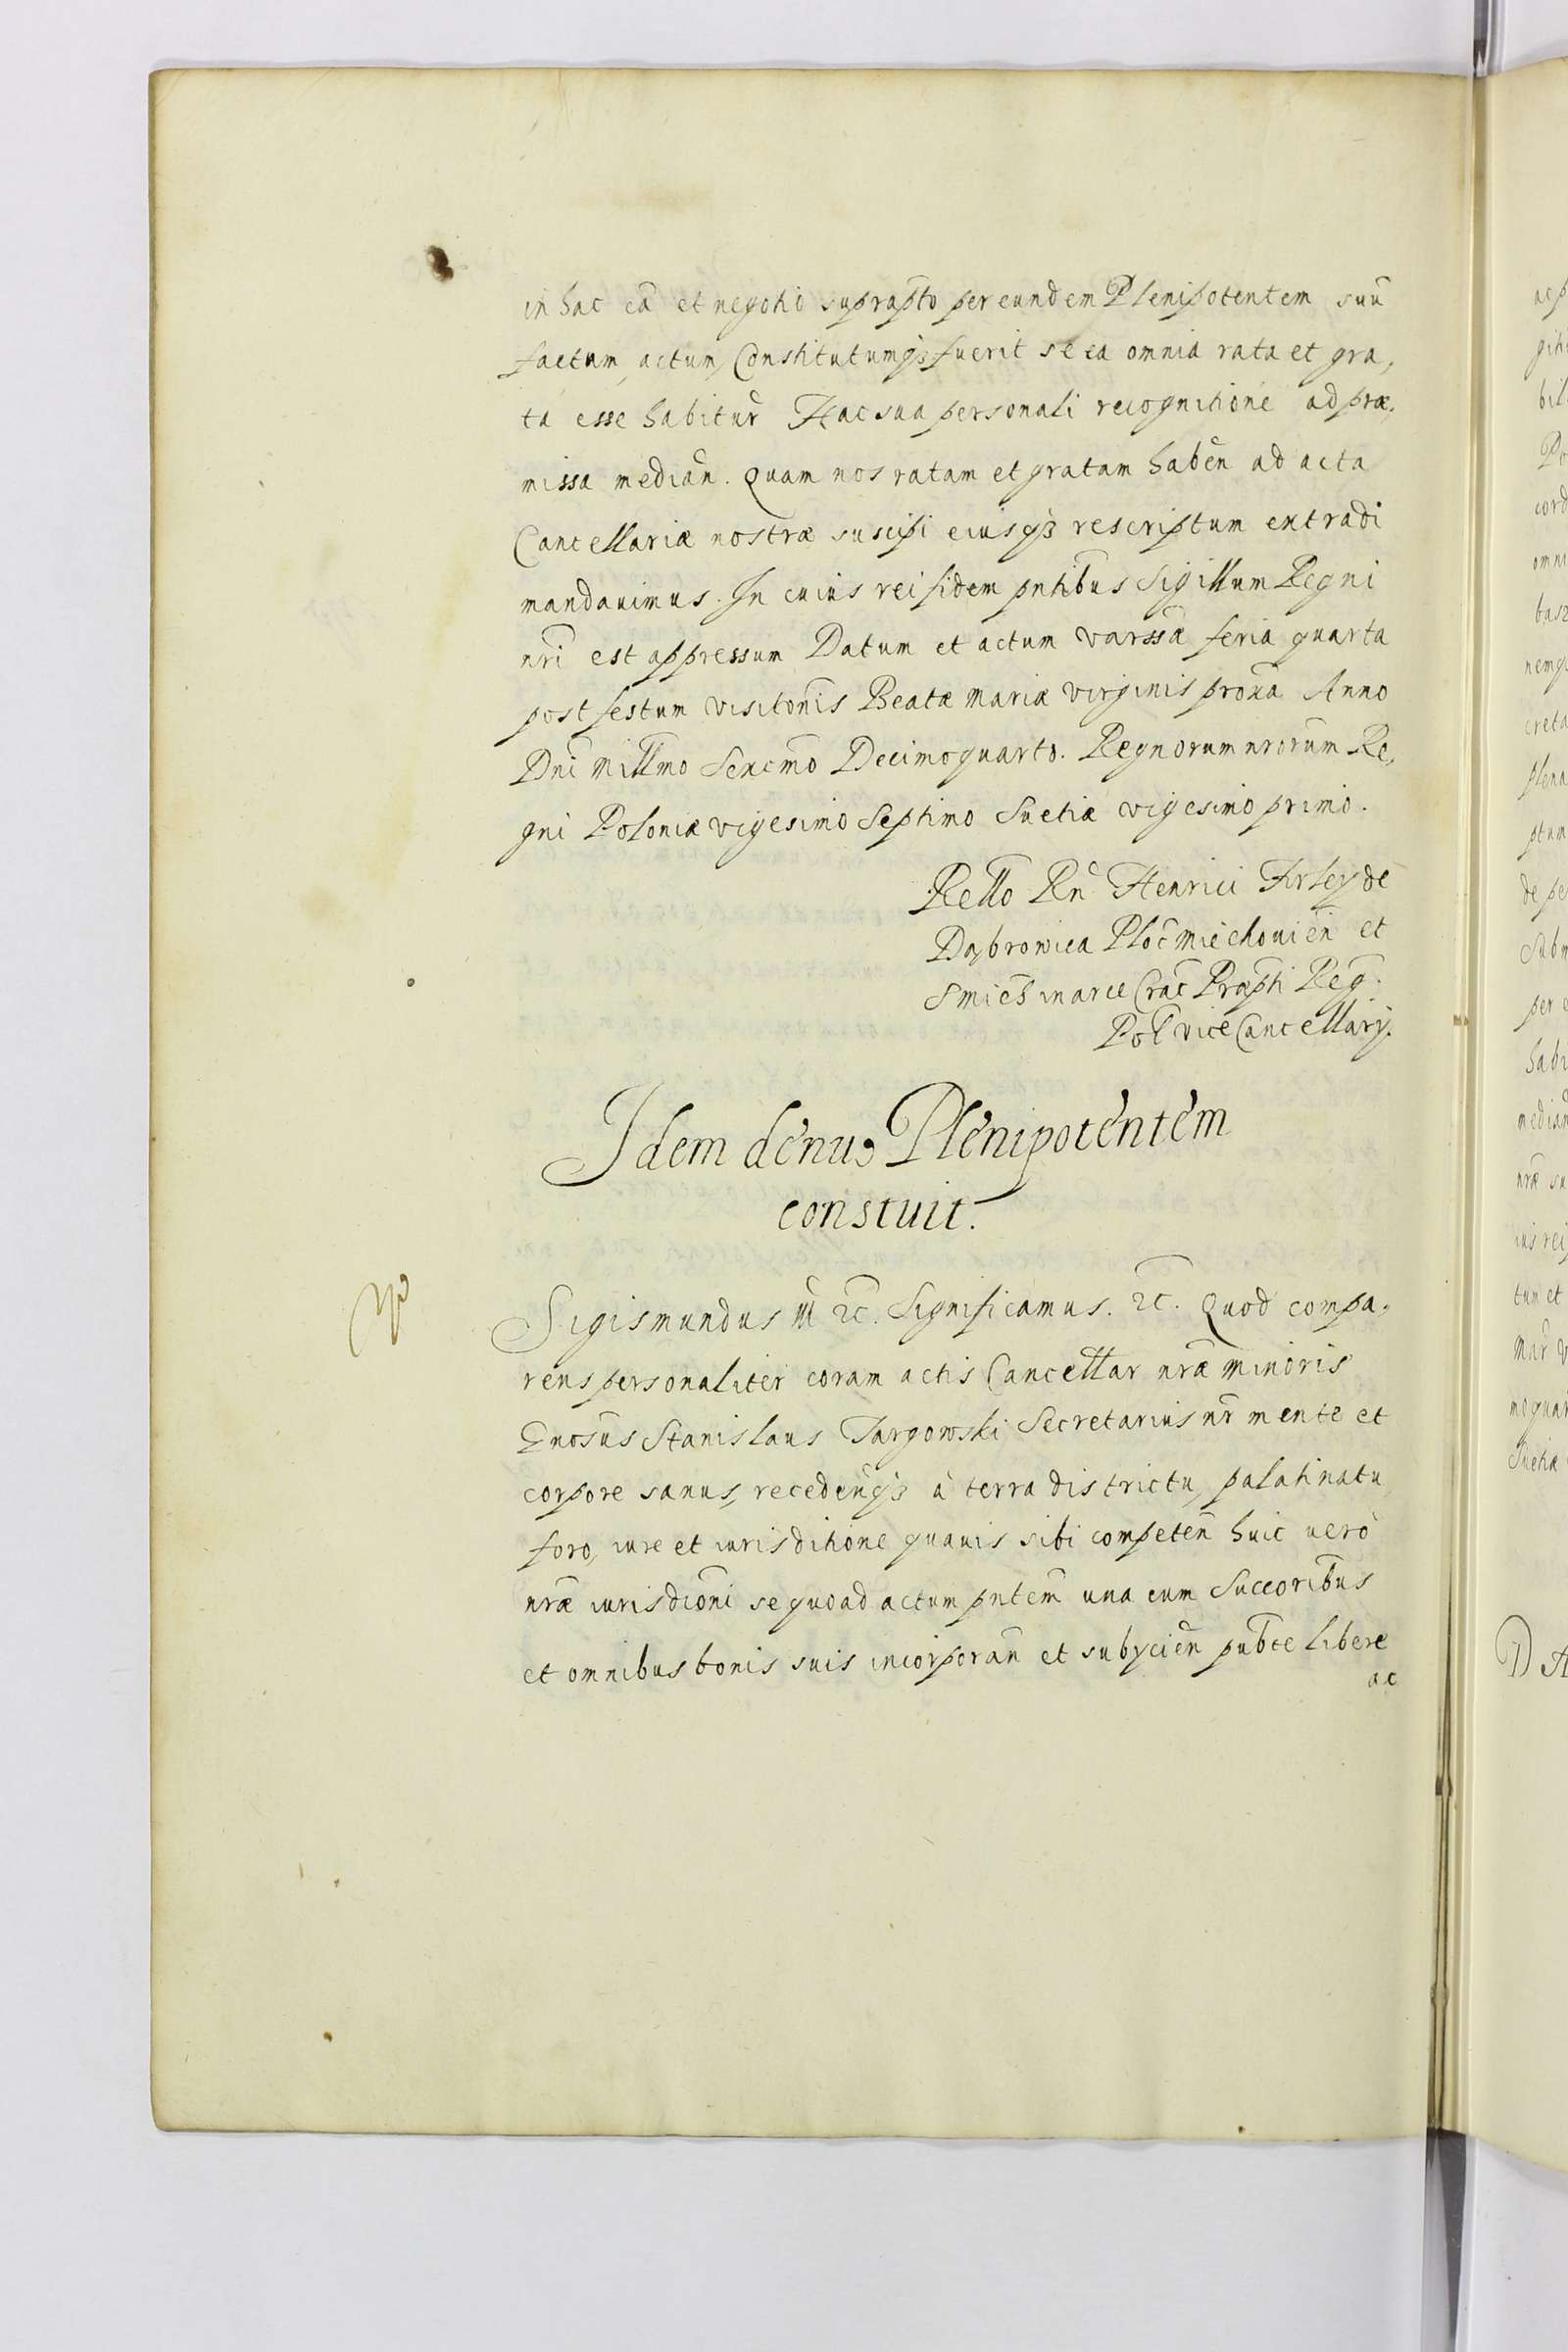 in hac cã et negotio suprapto per eundem Plenipotentem suũ
factum, actum, Constitutumq3 fuerit se ea omnia rata et gra,
ta esse habitur̃ Hac sua personali recognitione ad præ,
missa median̄. Quam nos ratam et gratam haben̄ ad acta
Cancellariæ nostræ suscipi eiusq3 rescriptum extradi
mandauimus. In cuius rei fidem pntibus Sigillum Regni
nr̃i est appressum Datum et actum Varssã feria quarta
post festum visitõnis Beatæ Mariæ virginis proxã Anno
Dni Millmo Sexcmo Decimoquarto. Regnorum nrorum Re,
gni Poloniæ vigesimo Septimo Suetiæ vigesimo primo.
Rello Rn̄ Henrici Firley de
Dąbrowica Ploc̃ Miechouien̄ et
S Mich in arce Crac̃ Præpti Reg̃.
Pol̃ vice Cancellarij.
Idem denuo Plenipotentem
constuit.
Sigismundus III 2c̃. Significamus. 2c̃. Quod compa,
rens personaliter coram actis Cancellar nr̃æ Minoris
Gnosus Stanislaus Targowski Secretarius nr̃ mente et
corpore sanus, recedenq3 à terra districtu, palatinatu
foro, iure et iurisditione quauis sibi competen̄ huic uerò
nr̃æ iurisdiõni se quoad actum pntem una cum Succoribus
et omnibus bonis suis incorporan̄ et subyicien̄ pubce libere
ac